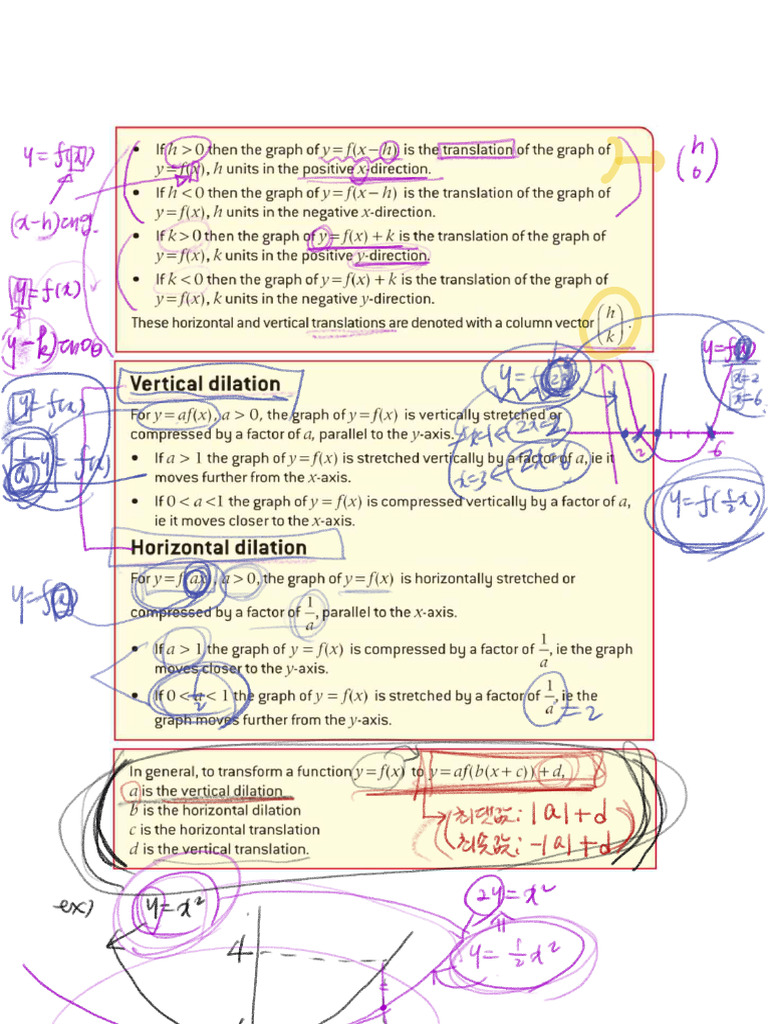 • If h > 0 then the graph of y = f(x − h) is the translation of the graph of
y = f(x), h units in the positive x-direction.
• If h < 0 then the graph of y = f(x − h) is the translation of the graph of
y = f(x), h units in the negative x-direction.
• If k > 0 then the graph of y = f(x) + k is the translation of the graph of
y = f(x), k units in the positive y-direction.
• If k < 0 then the graph of y = f(x) + k is the translation of the graph of
y = f(x), k units in the negative y-direction.
These horizontal and vertical translations are denoted with a column vector (h k).
y = f(x)
(x-h)
(h 0)
y = f(x)
(y-k)
Vertical dilation
For y = af(x), a > 0, the graph of y = f(x) is vertically stretched or
compressed by a factor of a, parallel to the y-axis.
• If a > 1 the graph of y = f(x) is stretched vertically by a factor of a, ie it
moves further from the x-axis.
• If 0 < a < 1 the graph of y = f(x) is compressed vertically by a factor of a,
ie it moves closer to the x-axis.
y = f(x)
1/a y = f(x)
y = f(2x)
x=1 ← 2x=2
x=3 ← 2x=6
y = f(x)
x=2
x=6
2
6
y = f(½x)
Horizontal dilation
For y = f(ax), a > 0, the graph of y = f(x) is horizontally stretched or
compressed by a factor of 1/a, parallel to the x-axis.
• If a > 1 the graph of y = f(x) is compressed by a factor of 1/a, ie the graph
moves closer to the y-axis.
• If 0 < a < 1 the graph of y = f(x) is stretched by a factor of 1/a, ie the
graph moves further from the y-axis.
y = f(x)
1/2
= 2
In general, to transform a function y = f(x) to y = af(b(x + c)) + d,
a is the vertical dilation
b is the horizontal dilation
c is the horizontal translation
d is the vertical translation.
최댓값: |a|+d
최솟값: -|a|+d
ex) y = x²
4
2y = x²
y = ½x²